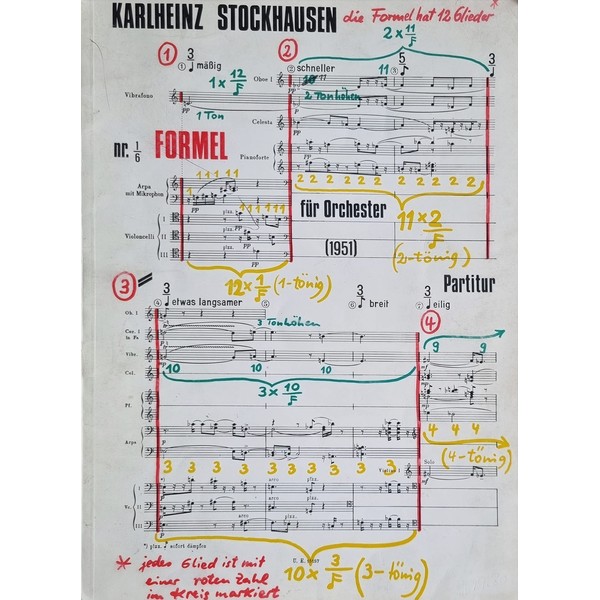 KARLHEINZ STOCKHAUSEN die Formel hat 12 Glieder *
2 x 11/♪
1 3 2 11 5 3
① ♩ mäßig ② schneller ③ ♪ ♩
1 x 12/♪ Oboe I
Vibrafono pp 2 Tonhöhen
1 Ton Celesta
nr. 1/6 FORMEL Pianoforte
11 11 11 2 2 2 2 2 2 2 2 2
Arpa
mit Mikrophon
1 1 1 1 1 1 1
für Orchester 11 x 2/♪
Violoncelli I II III pizz. (1951) (2-tönig)
12 x 1/♪ (1-tönig)
3 3 3 3 3 Partitur
④ ♩ etwas langsamer ⑤ ⑥ ♪ breit ⑦ ♩ eilig
Ob. I 3 Tonhöhen 4
Cor. I
in Fa 9 9
Vibr.
Cel. 10 10 10
3 x 10/♪
Pf. 4 4 4
Arpa (4-tönig)
3 3 3 3 3 3 3 3 3 3 Violine I Solo
Vc. I II III pizz. arco pizz. arco pizz.
*) pizz. sofort dämpfen
U. E.
* jedes Glied ist mit 10 x 3/♪ (3-tönig)
einer roten Zahl
im Kreis markiert